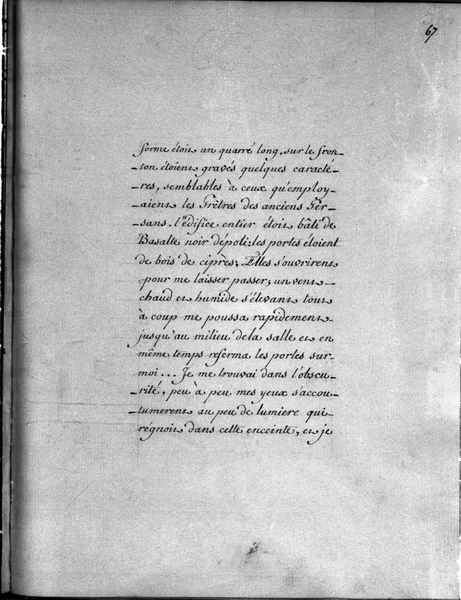 67
forme étoit un quarré long, sur le fron-
-ton étoient gravés quelques caractè-
-res, semblables à ceux qu'employ-
-aient les Prêtres des anciens Per-
-sans. l'édifice entier étoit bâti de
Basalte noir dépoli: les portes étoient
de bois de ciprès; Elles s'ouvrirent
pour me laisser passer; un vent
chaud et humide s'élevant tout
à coup me poussa rapidement
jusqu'au milieu de la salle et en
même temps referma les portes sur
moi... Je me trouvai dans l'obscu-
-rité, peu à peu mes yeux s'accou-
-tumerent au peu de lumiere qui
régnoit dans cette enceinte, et je